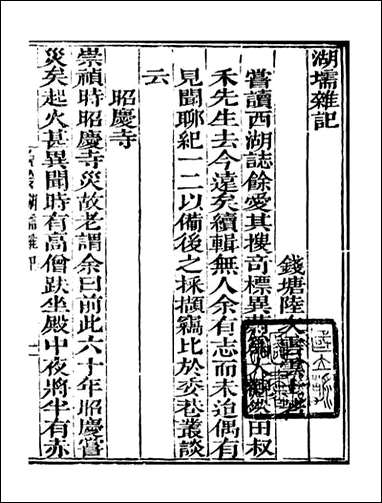 湖壖雜記
錢塘陸雲雲士
嘗讀西湖誌餘愛其搜奇標異田叔
禾先生去今遠矣續輯無人余有志而未迨偶有
見聞聊紀一二以備後之採擷竊比於委巷叢談
云
昭慶寺
崇禎時昭慶寺災故老謂余曰前此六十年昭慶嘗
災矣起火甚異聞時有高僧趺坐殿中夜將半有赤
湖壖雜記